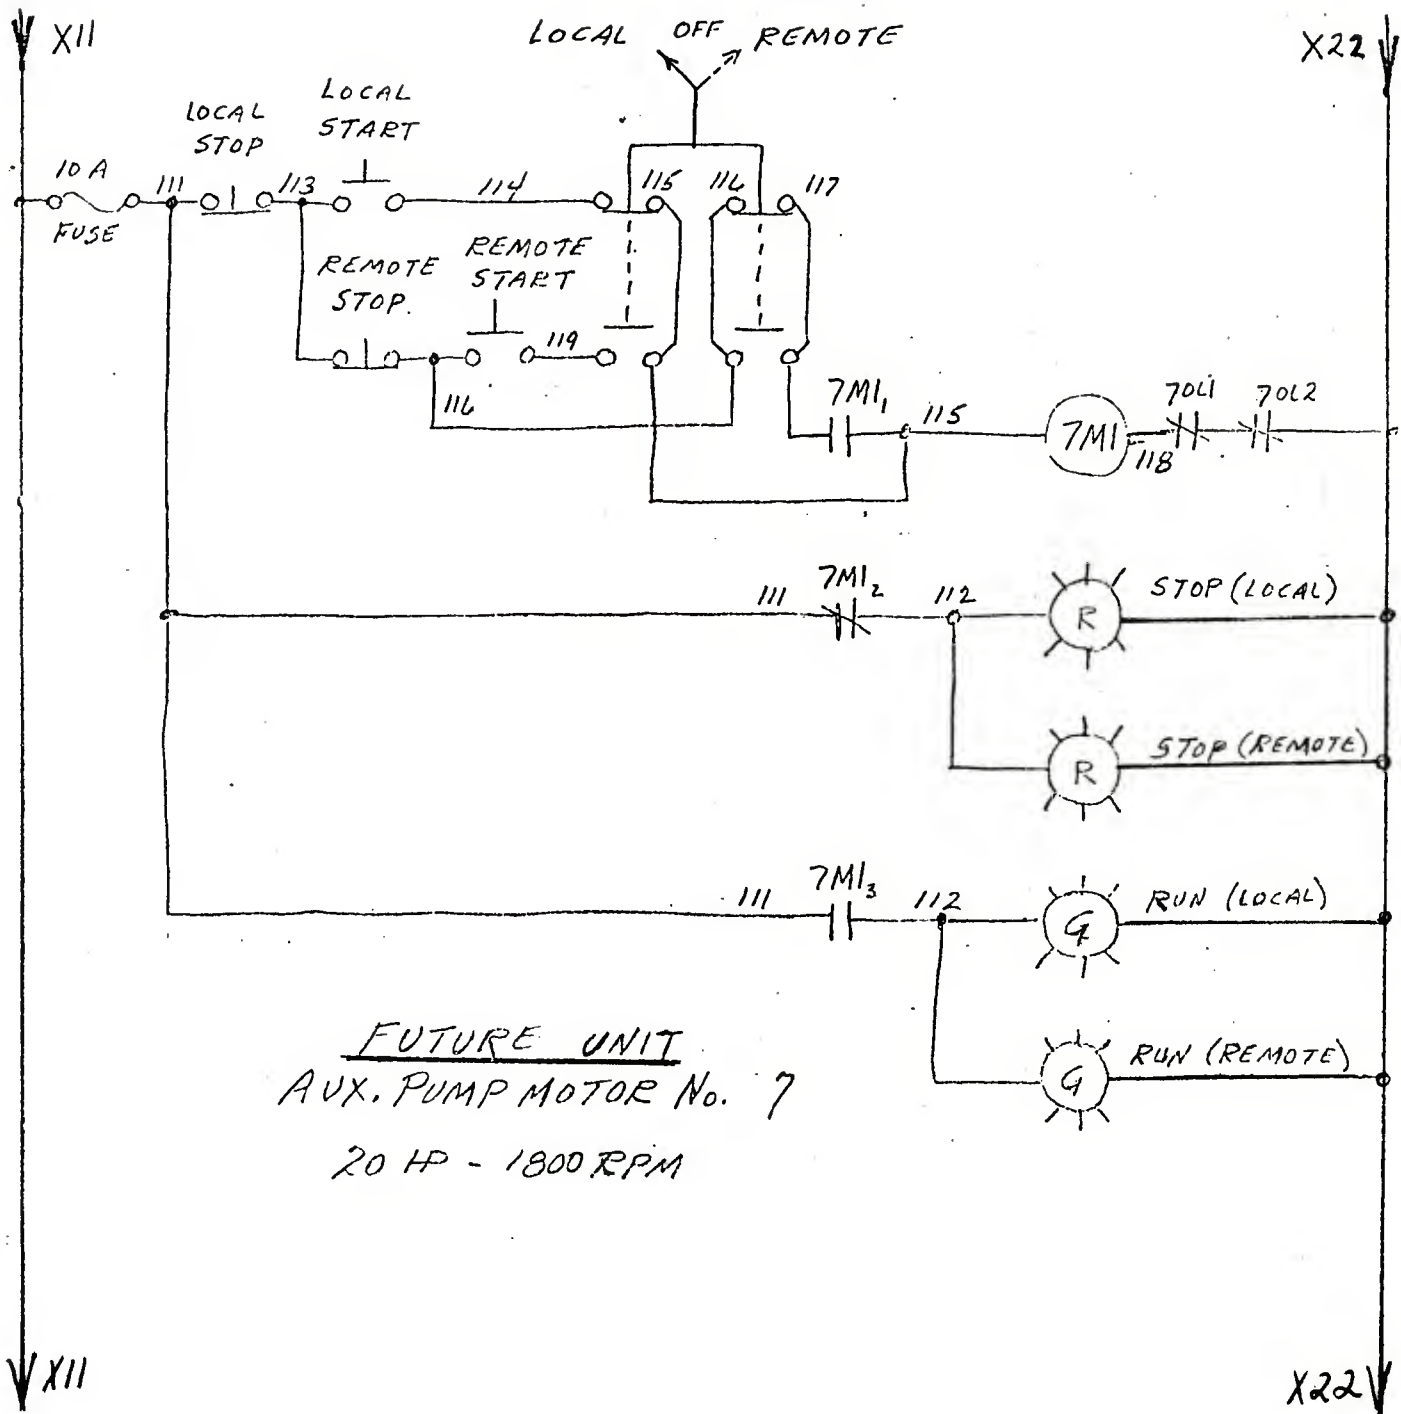 X11
LOCAL OFF REMOTE
X22
LOCAL STOP
LOCAL START
10 A
FUSE
111
113
114
115
116
117
REMOTE STOP.
REMOTE START
119
116
7M1₁
115
7M1
118
7OL1
7OL2
111
7M1₂
112
R
STOP (LOCAL)
R
STOP (REMOTE)
111
7M1₃
112
G
RUN (LOCAL)
G
RUN (REMOTE)
FUTURE UNIT
AUX. PUMP MOTOR No. 7
20 HP - 1800 RPM
X11
X22